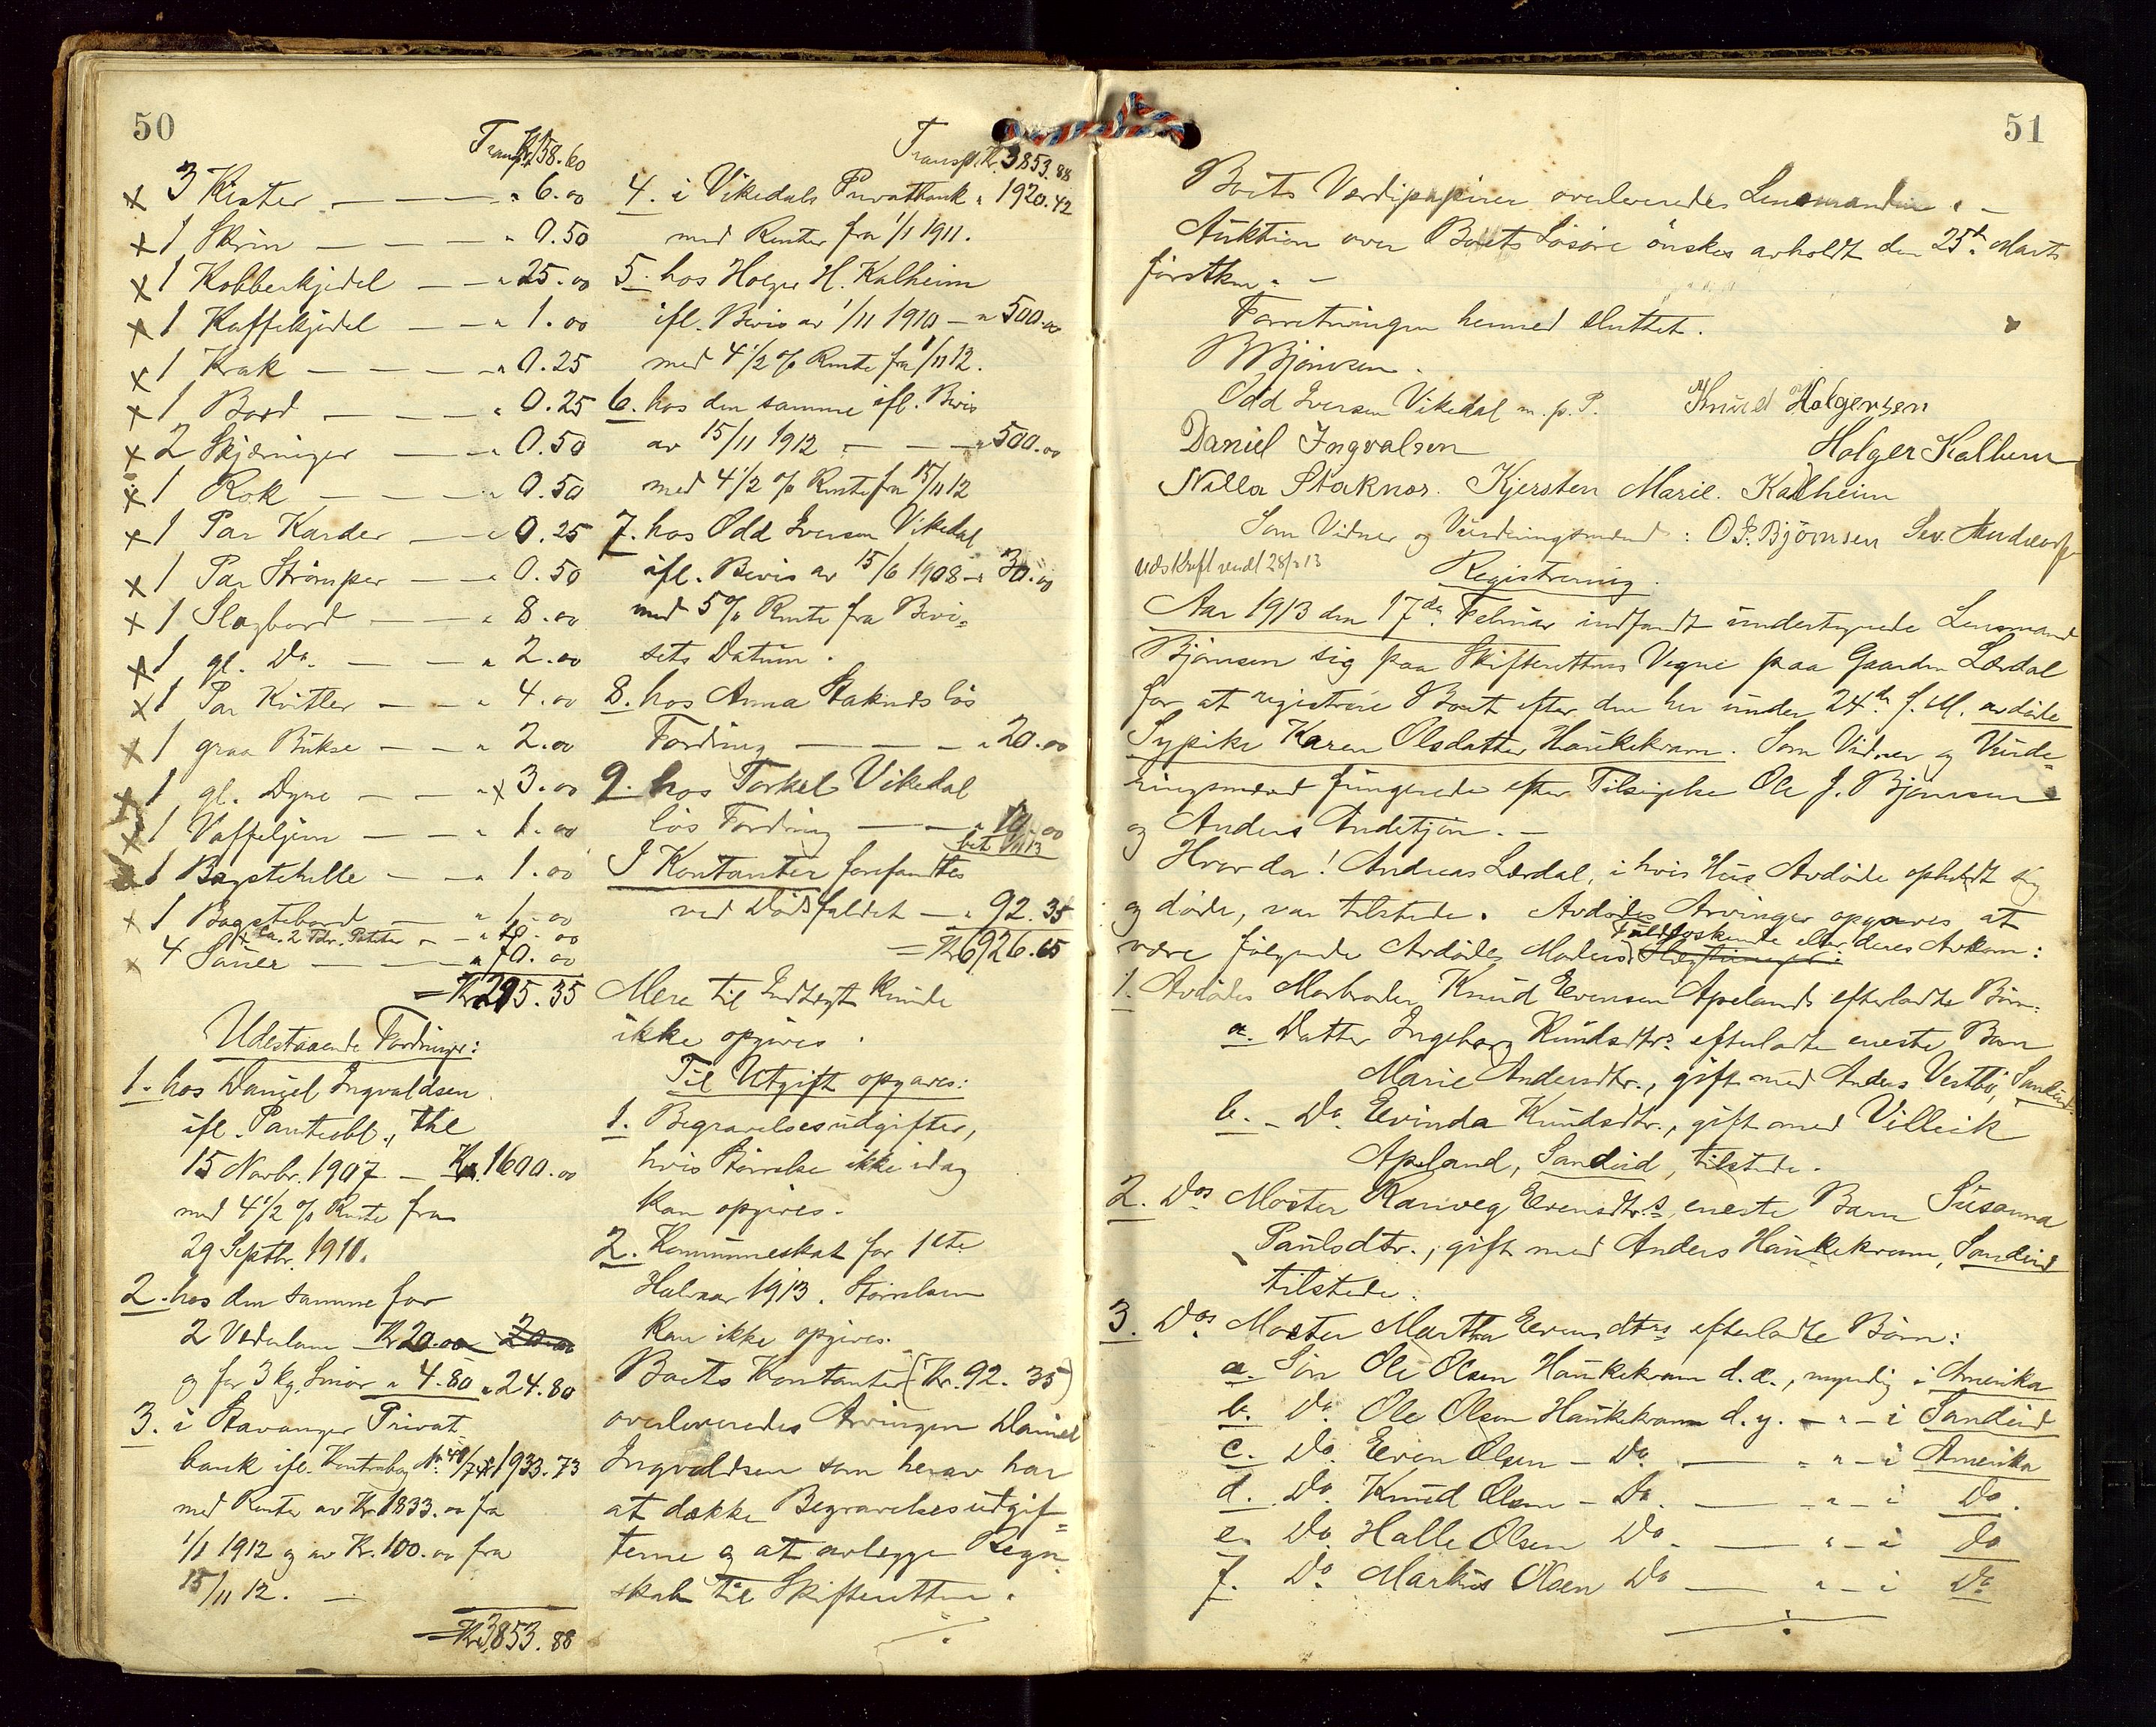 50
Transp. Kr. 158.60
x 3 Kister — — — " 6.00
x 1 Skrin — — — " 0.50
x 1 Kobberkjedel — — " 25.00
x 1 Kaffekjedel — — " 1.00
x 1 Krak — — — — " 0.25
x 1 Bord — — — " 0.25
x 2 Skjæringer — — " 0.50
x 1 Rok — — — " 0.50
x 1 Par Karder — — " 0.25
x 1 Par Strömper — — " 0.50
x 1 Slagbord — — " 8.00
x 1 gl. Do. — — " 2.00
x 1 Par Kvitler — — " 4.00
x 1 graa Bukse — — " 2.00
x 1 gl. Dyne — — " x 3.00
x 1 Vaffeljern — — " 1.00
x 1 Bagstehelle — — " 1.00
x 1 Bagstebord — " 1.00
+ ca. 2 Tdr. Poteter — — " 10.00
x 4 Sauer — — — " 70.00
= Kr. 295.35
Udestaaende Fordringer:
1. hos Daniel Ingvaldsen
ifl. Panteobl., thl.
15 Novbr. 1907 — Kr. 1600.00
med 4 1/2 % Rente fra
29 Septbr. 1910.
2. hos den samme for
2 Vederlam Kr 20.00 20.00
og for 3 kg. Smør " 4.80 " 24.80
3. i Stavanger Privat
bank ifl. Kontrabog No 40/74 Kr 1933.73
med Renter av Kr 1833.00 fra
1/1 1912 og av Kr. 100.00 fra
15/11 12. —
= Kr 3853.88
Transp. Kr. 3853.88
4. i Vikedals Privatbank " 1920.42
med Renter fra 1/1 1911.
5. hos Holger H. Kalheim
ifl. Bevis av 1/11 1910 — " 500.00
med 4 1/2 % Rente fra 1/11 12.
6. hos den samme ifl. Bevis
av 15/11 1912 — — — " 500.00
med 4 1/2 % Rente fra 15/11 12
7. hos Odd Iversen Vikedal
ifl. Bevis av 15/6 1908 — " 30.00
med 5 % Rente fra Bevi-
sets Datum.
8. hos Anna Staknes lös
Fordring — — — " 20.00
9. hos Torkel Vikedal
lös Fordring — — " 10.00
I Kontanter forefandtes
ved Dödsfaldet — " 92.35
= Kr 6926.65
Mere til Indtægt kunde
ikke opgives.
Til Utgift opgaves:
1. Begravelsesudgifter,
hvis Størrelse ikke idag
kan opgives.
2. Kommuneskat for 1ste
Halvaar 1913. Størrelsen
kan ikke opgives.
Boets Kontanter (Kr. 92.35)
overleveredes Arvingen Daniel
Ingvaldsen som herav har
at dække Begravelsesudgif-
terne og at avlegge Regn-
skab til Skifteretten.
51
Boets Værdipapirer overleveredes Lensmanden. —
Auktion over Boets Lösöre önskes avholdt den 25de Marts
förstkm. —
Forretningen hermed sluttet.
B Björnsen.
Odd Iversen Vikedal m. p. P. Knud Holgersen
Daniel Ingvalsen Holger Kalheim
Nilla Staknes. Kjersten Marie. Kalheim
Som Vidner og Vurderingsmænd: O. J. Björnsen Sev.
Udskrift sendt 28/2 13
Registrering.
Aar 1913 den 17de Februar indfandt undertegnede Lensmand
Björnsen sig paa Skifterettens Vegne paa Gaarden Lærdal
for at registrere Boet efter den her under 24de f. M. avdöde
Sypike Karen Olsdatter Haukekvam. Som Vidner og Vurde-
ringsmænd fungerede efter Tilsigelse Ole J. Björnsen
og Anders Andetjön. —
Hvorda! Andreas Lærdal, i hvis Hus Avdöde opholdt sig
og döde, var tilstede. Avdödes Arvinger opgaves at
være fölgende Avdödes Moders Fuldsöskende eller deres Avkom:
1. Avdödes Morbroder Knud Evensen Apelands efterladte Börn:
a. Datter Ingeborg Knudsdtrs efterladte eneste Barn
Marie Andersdtr., gift med Anders Vestbö, Sandeid.
b. — Do. Evinda Knudsdtr., gift med Villeik
Apeland, Sandeid, tilstede.
2. Dos Moster Ranveg Evensdtr.s eneste Barn Susanna
Paulsdtr., gift med Anders Haukekvam, Sandeid
tilstede.
3. Dos Moster Martha Evensdtrs efterladte Börn:
a. Sön Ole Olsen Haukekvam d. æ., myndig i Amerika
b. Do. Ole Olsen Haukekvam d. y. — " — i Sandeid
c. Do. Even Olsen — Do. — " — i Amerika
d. Do. Knud Olsen — Do. — " — i Do.
e. Do. Halle Olsen Do. — " — i Do
f. Do. Markus Olsen Do — " — i Do